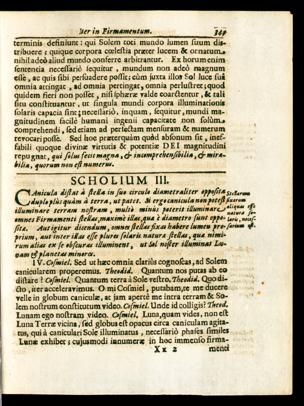 Iter in Firmamentum. 349
terminis definiunt: qui Solem toti mundo lumen suum dis-
tribuere; quique corpora cœlestia præter lucem & ornatum,
nihil adeò aliud mundo conferre arbitrantur. Ex horum enim
sententia necessariò sequitur, mundum non adeò magnum
esse, ac quis sibi persuadere possit; cùm juxta illos Sol luce sua
omnia attingat, ad omnia pertingat, omnia perlustret; quod
quidem fieri non posset, nisi sphæræ valde coarctentur, & tali
situ constituantur, ut singula mundi corpora illuminationis
solaris capacia sint; necessariò, inquam, sequitur, mundi ma-
gnitudinem facilè humani ingenii capacitate non solùm
comprehendi, sed etiam ad perfectam mensuram & numerum
revocari posse. Sed hoc præterquam quòd absonum sit, inef-
fabili quoque divinæ virtutis & potentiæ DEI magnitudini
repugnat, qui solus scit magna, & incomprehensibilia, & mira-
bilia, quorum non est numerus.
SCHOLIUM III.
Canicula distat à stella in suo circulo diametraliter opposita
duplo plùs quàm à terra, ut patet. Si ergo canicula non potest
illuminare terram nostram, multò minùs poterit illuminare
omnes Firmamenti stellas, maximè illas, quæ è diametro sunt oppo-
sitæ. Aut igitur dicendum, omnes stellas fixas habere lumen pro-
prium, aut inter illas esse plures solaris naturæ stellas, quæ nimi-
rum alias ex se obscuras illuminent, ut Sol noster illuminat Lu-
nam & planetas minores.
Stellarum
fixarum
aliquæ est
naturæ so-
IV. Cosmiel. Sed ut hæc omnia clariùs cognoscas, ad Solem
canicularem properemus. Theodid. Quantum nos putas ab eo
distare? Cosmiel. Quantum terra à Sole vestro. Theodid. Quo di-
cto, iter acceleravimus. O mi Cosmiel, putabam, te me ducere
velle in globum caniculæ, at jam apertè me inter terram & So-
lem nostrum constitutum video. Cosmiel. Unde id colligis? Theod.
Lunam ego nostram video. Cosmiel. Luna, quam vides, non est
Luna Terræ vicina, sed globus est opacus circa caniculam agita-
tus, qui à caniculari Sole illuminatus, necessariò phases similes
Lunæ exhibet; cujusmodi innumeræ in hoc immenso firma-
Xx 2 menti